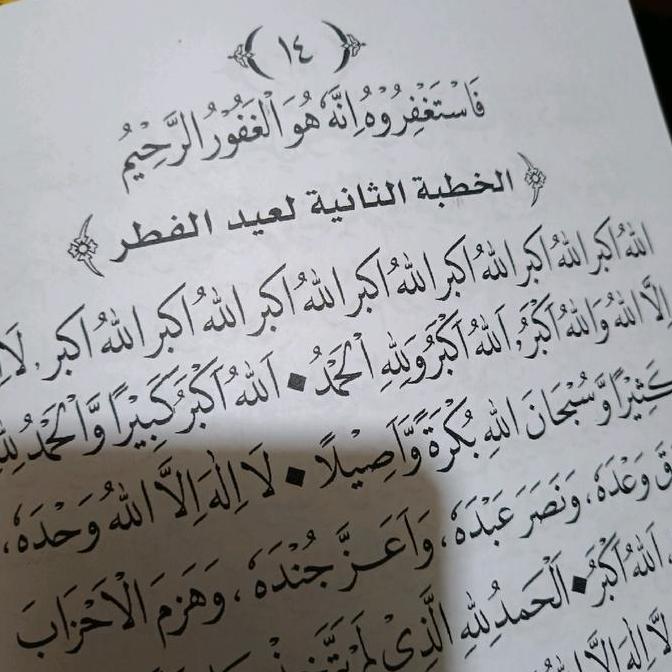 ١٤
فَاسْتَغْفِرُوْهُ اِنَّهٗ هُوَ الْغَفُوْرُ الرَّحِيْمُ
الخطبة الثانية لعيد الفطر
اللهُ اكبر اللهُ اكبر اللهُ اكبر اللهُ اكبر اللهُ اكبر اللهُ اكبر اللهُ اكبر، لَا
اِلَّا اللهُ وَاللهُ اَكْبَرُ، اَللهُ اَكْبَرُ وَلِلّٰهِ الْحَمْدُ ◆ اَللهُ اَكْبَرُ كَبِيْرًا وَّالْحَمْدُ لِلّٰهِ
كَثِيْرًا وَّسُبْحَانَ اللهِ بُكْرَةً وَّاَصِيْلًا ◆ لَا اِلٰهَ اِلَّا اللهُ وَحْدَهٗ،
وَعْدَهٗ، وَنَصَرَ عَبْدَهٗ، وَاَعَزَّ جُنْدَهٗ، وَهَزَمَ الْاَحْزَابَ
اَللهُ اَكْبَرُ ◆ اَلْحَمْدُ لِلّٰهِ الَّذِيْ لَمْ
لَا اِلٰهَ اِلَّا اللهُ